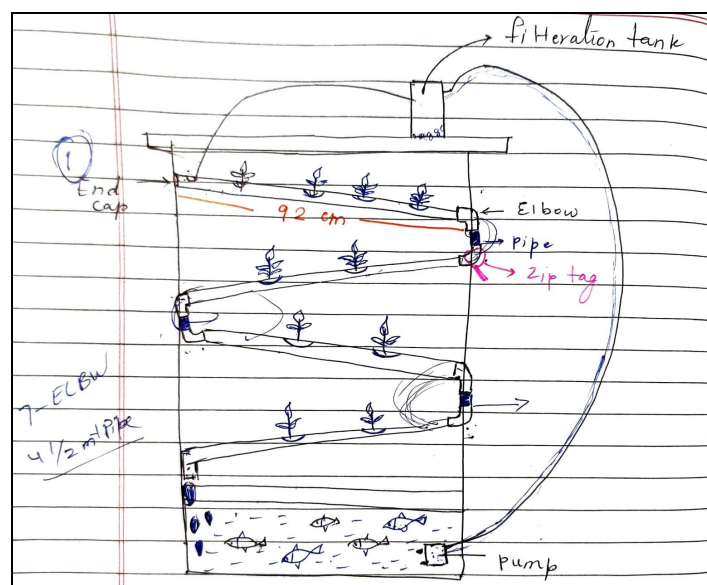 filteration tank
1
End
cap
92 cm
Elbow
pipe
Zip tag
7 - ELBW
4 1/2 mt Pipe
pump